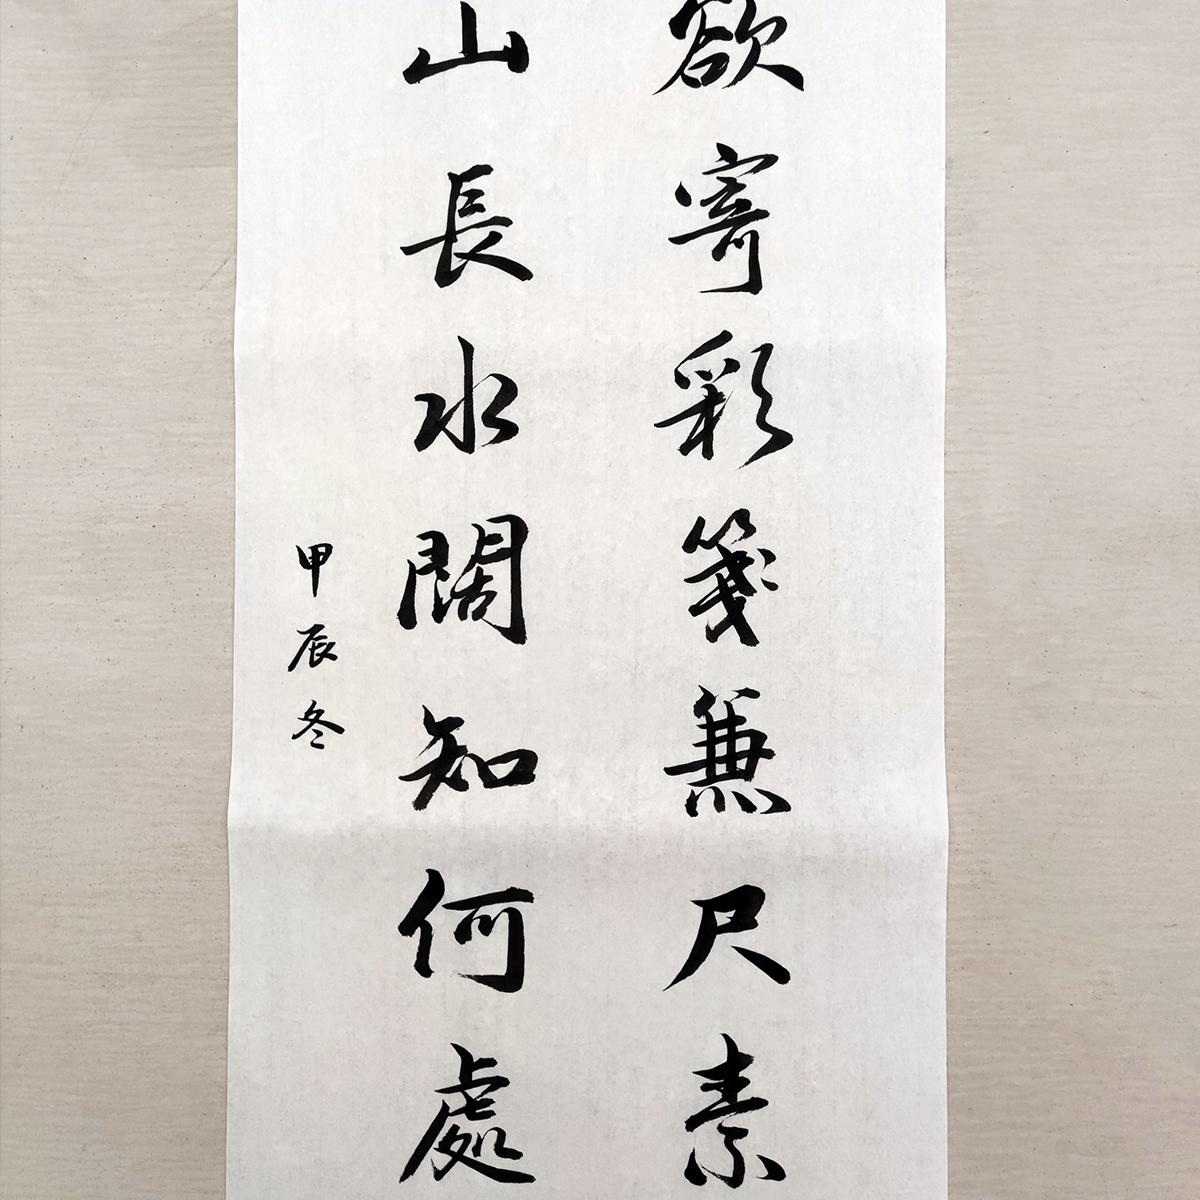 欲寄彩箋兼尺素
山長水闊知何處
甲辰冬